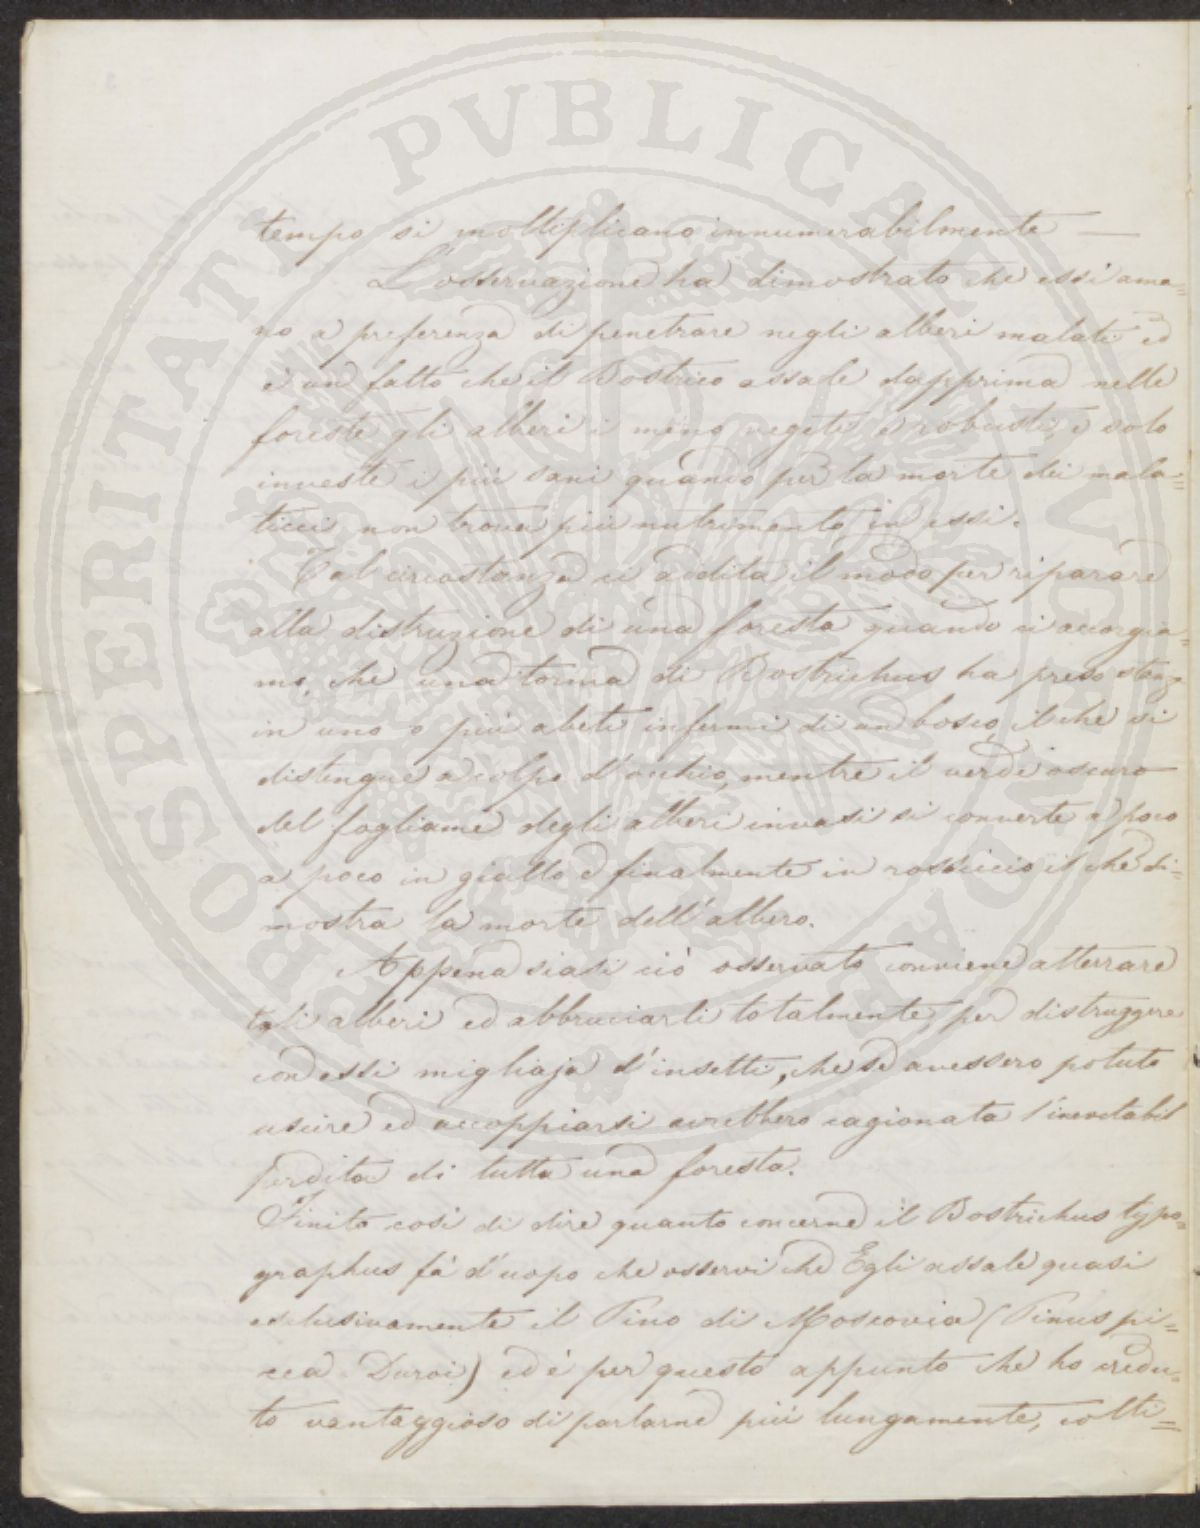 tempo si moltiplicano innumerabilmente —
L'osservazione ha dimostrato che essi ama=
no a preferenza di penetrare negli alberi malati ed
è un fatto che il Bostrico assale dapprima nelle
foreste gli alberi i meno vegeti e robusti, e solo
investe i più sani quando per la morte dei mala=
ticci non trova più nutrimento in essi.
Tal circostanza ci addita il modo per riparare
alla distruzione di una foresta quando ci accorgia=
mo, che una torma di Bostrichus ha preso stanza
in uno o più abeti infermi di un bosco, il che si
distingue a colpo d'occhio, mentre il verde oscuro
del fogliame degli alberi invasi si converte a poco
a poco in giallo e finalmente in rossiccio il che di=
mostra la morte dell'albero.
Appena siasi ciò osservato conviene atterrare
tali alberi ed abbruciarli totalmente, per distruggere
con essi migliaja d'insetti, che se avessero potuto
uscire ed accoppiarsi avrebbero cagionata l'inevitabil
perdita di tutta una foresta.
Finito così di dire quanto concerne il Bostrichus typo=
graphus fà d'uopo che osservi che Egli assale quasi
esclusivamente il Pino di Moscovia (Pinus pi=
cea Duroi) ed è per questo appunto che ho credu=
to vantaggioso di parlarne più lungamente, colti=
PROSPERITATI PVBLICAE AVGENDAE